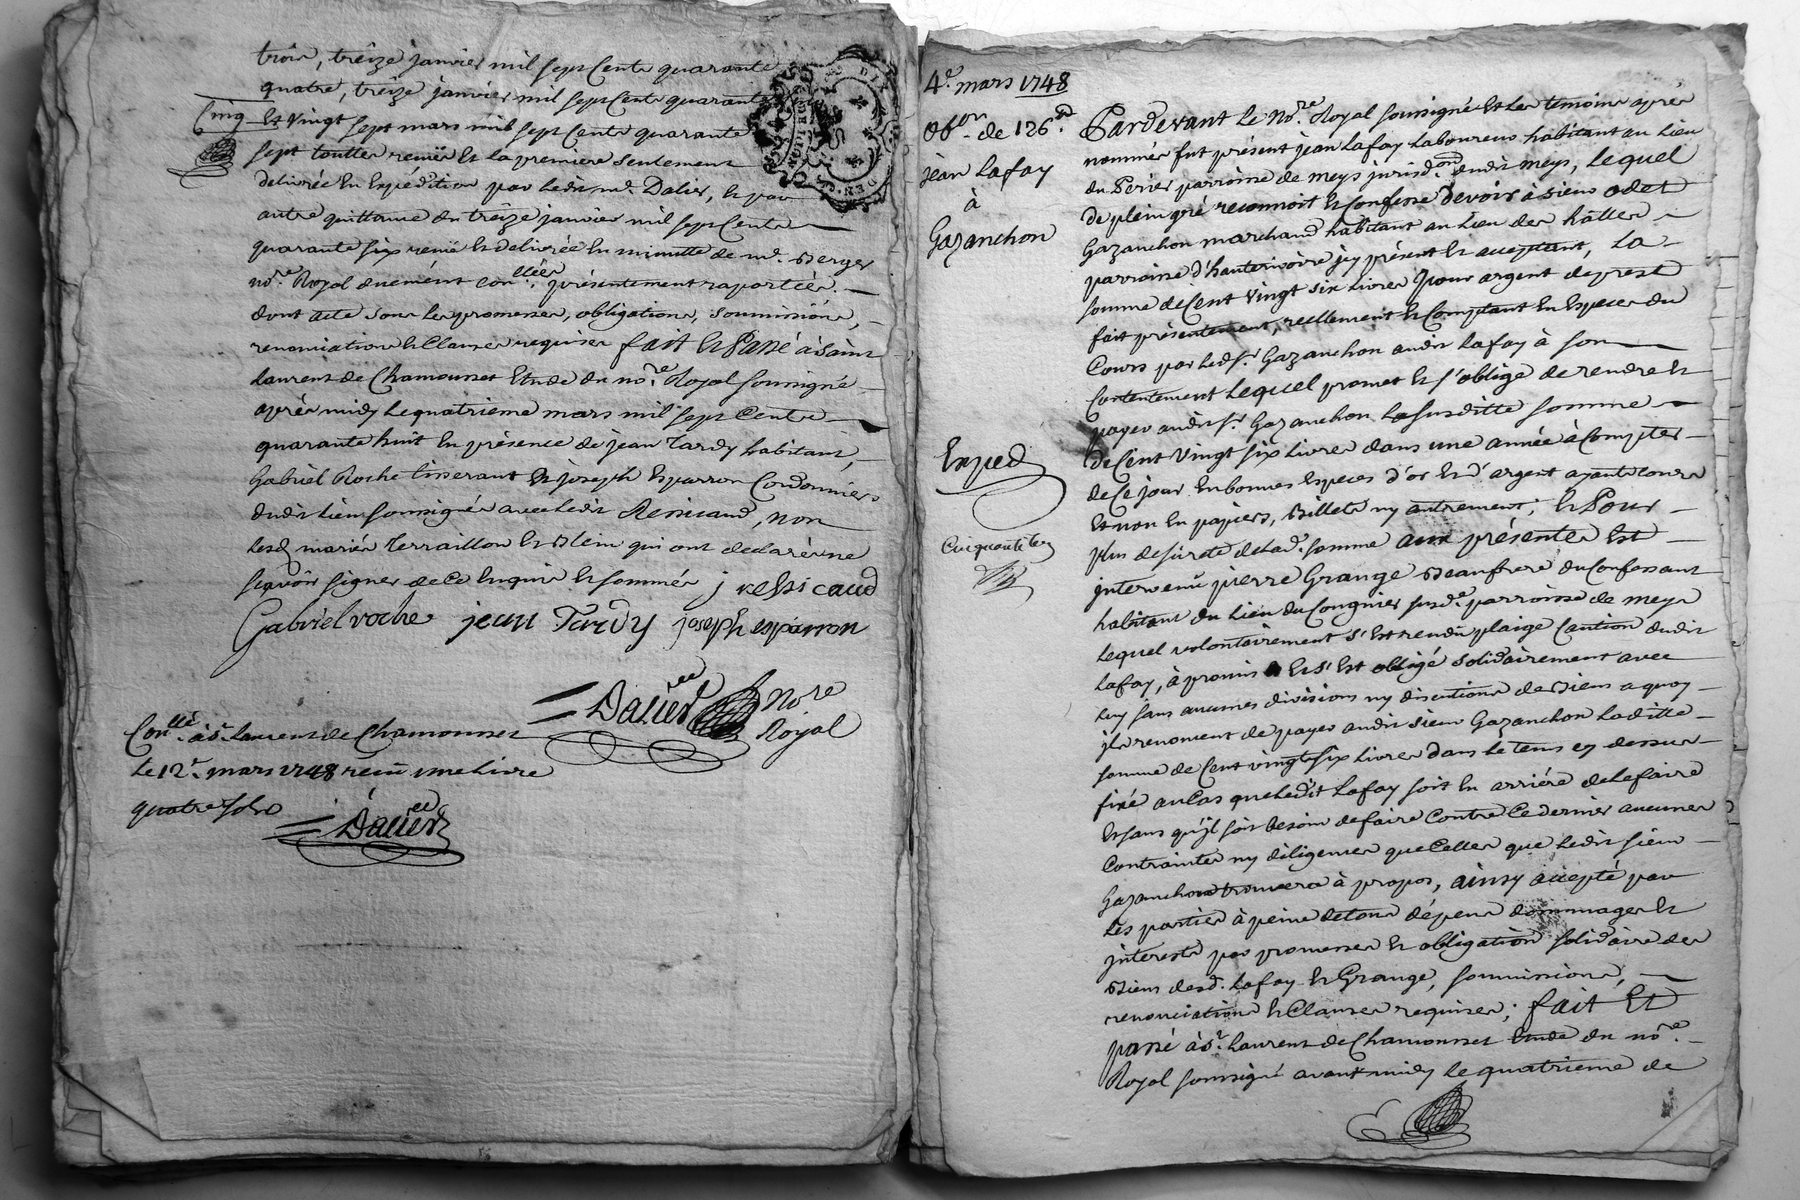 trois, treize janvier mil sept Cents quarante
quatre, treize janvier mil sept Cents quarante
Cinq Et vingt sept mars mil sept Cents quarante
sept touttes remis Et la premiere seulement
délivrée En Expédition par ledit me. Dalier, Et par
autre quittance du treize janvier mil sept Cents
quarante six remis Et délivrée En minutte de me. Berger
nore. Royal duement conllées. présentement raportées.
dont acte sous les promesses, obligations, soumissions,
renonciations Et Clauses requises fait Et Passé à Saint
Laurent de Chamousset Etude du nore. Royal soussigné
après midy Le quatrieme mars mil sept Cents
quarante huit En présence de jean Tardy habitant,
Gabriel Roche tisserant Et joseph Esparron Cordonniers
dudit Lieu soussignés avec ledit Ressicaud, non
lesd. mariés Terraillon Et Blein qui ont declarés ne
sçavoir signer de ce Enquis Et sommés j ressicaud
Gabriel roche jean Tardy joseph esparron
Dalier Nore
Royal
Conllé. à St. Laurent de Chamousset
Le 12e. mars 1748 reçu une Livre
quatre sols
Dalier
4e. mars 1748
obon. de 126 #
jean Lafay
à
Gazanchon
Exped
Pardevant Le Nore. Royal soussigné Et Les temoins après
nommés fut présent jean Lafay Laboureur habitant au Lieu
du Perier parroisse de meys jurisdon. dudit meys, Lequel
de plein gré reconnoit Et Confesse devoir à sieur odet
Gazanchon marchand habitant au Lieu des halles
parroisse d'hauterivoire jcy présent Et acceptant, La
somme de Cent vingt six Livres Pour argent de prest
fait présentement, reellement Et Comptant En Especes du
Cours par Ledsr. Gazanchon audit Lafay à son
Contentement Lequel promet Et s'oblige de rendre Et
payer audit sr. Gazanchon La susditte somme
de Cent vingt six Livres dans une année à Compter
de Ce jour En bonnes Especes d'or Et d'argent ayants Cours
Et non En papiers, Billets ny autrement; Et Pour
plus de sureté de Lad. somme aux présentes Est
intervenû pierre Grange Beaufrere du Confessant
habitant du Lieu du Cognier susde. parroisse de meys
Lequel volontairement s'Est rendû plaige Caution dudit
Lafay, à promis Et s'Est obligé solidairement avec
Luy sans aucunes divisions ny discutions de Biens a quoy
jls renoncent de payer audit sieur Gazanchon Laditte
somme de Cent vingt six Livres dans Le tems cy dessus
fixé au Cas que Ledit Lafay soit En arriére de Le faire
Et sans qu'jl soit besoin de faire Contre Ce dernier aucunes
Contraintes ny diligences que Celles que Ledit sieur
Gazanchon trouvera à propos, ainsy accepté par
Les parties à peine de tous dépens dommages Et
interests par promesses Et obligation solidaire des
Biens desd. Lafay Et Grange, soumissions,
renonciations Et Clauses requises; fait Et
passé à St. Laurent de Chamousset Etude du nore.
Royal soussigné avant midy Le quatrieme de